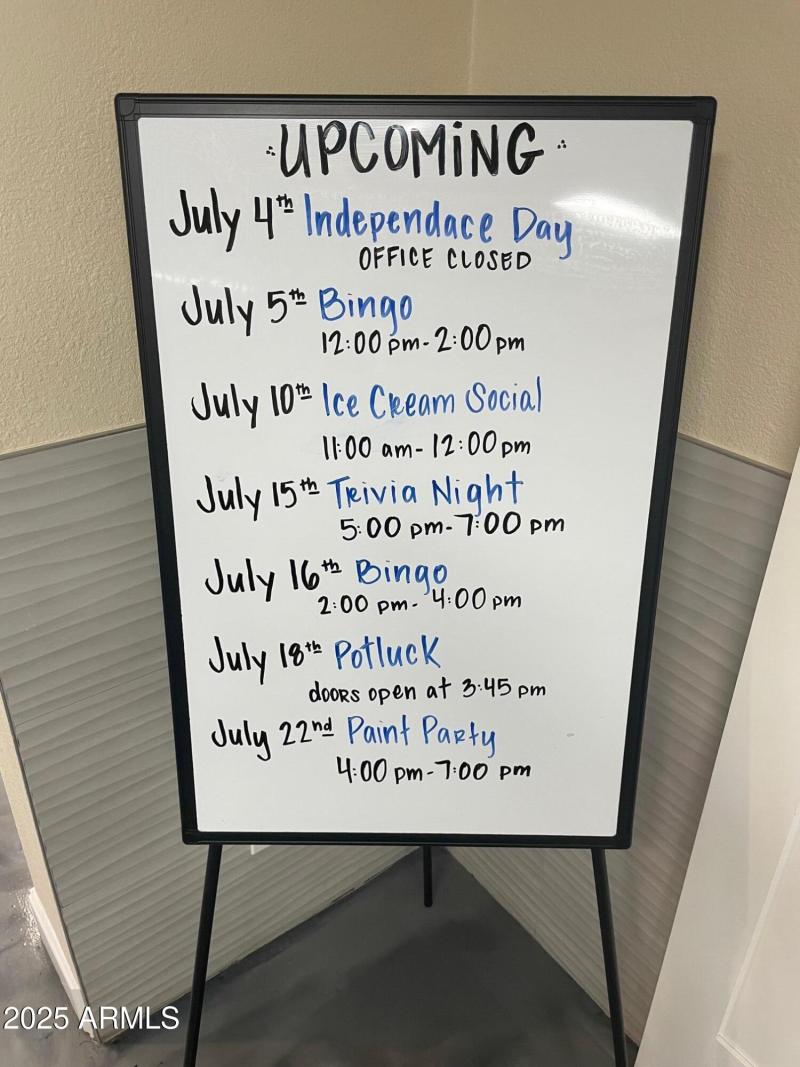 UPCOMING
July 4th Independace Day
OFFICE CLOSED
July 5th Bingo
12:00 pm-2:00 pm
July 10th Ice Cream Social
11:00 am-12:00 pm
July 15th Trivia Night
5:00 pm-7:00 pm
July 16th Bingo
2:00 pm-4:00 pm
July 18th Potluck
doors open at 3:45 pm
July 22nd Paint Party
4:00 pm-7:00 pm
2025 ARMLS